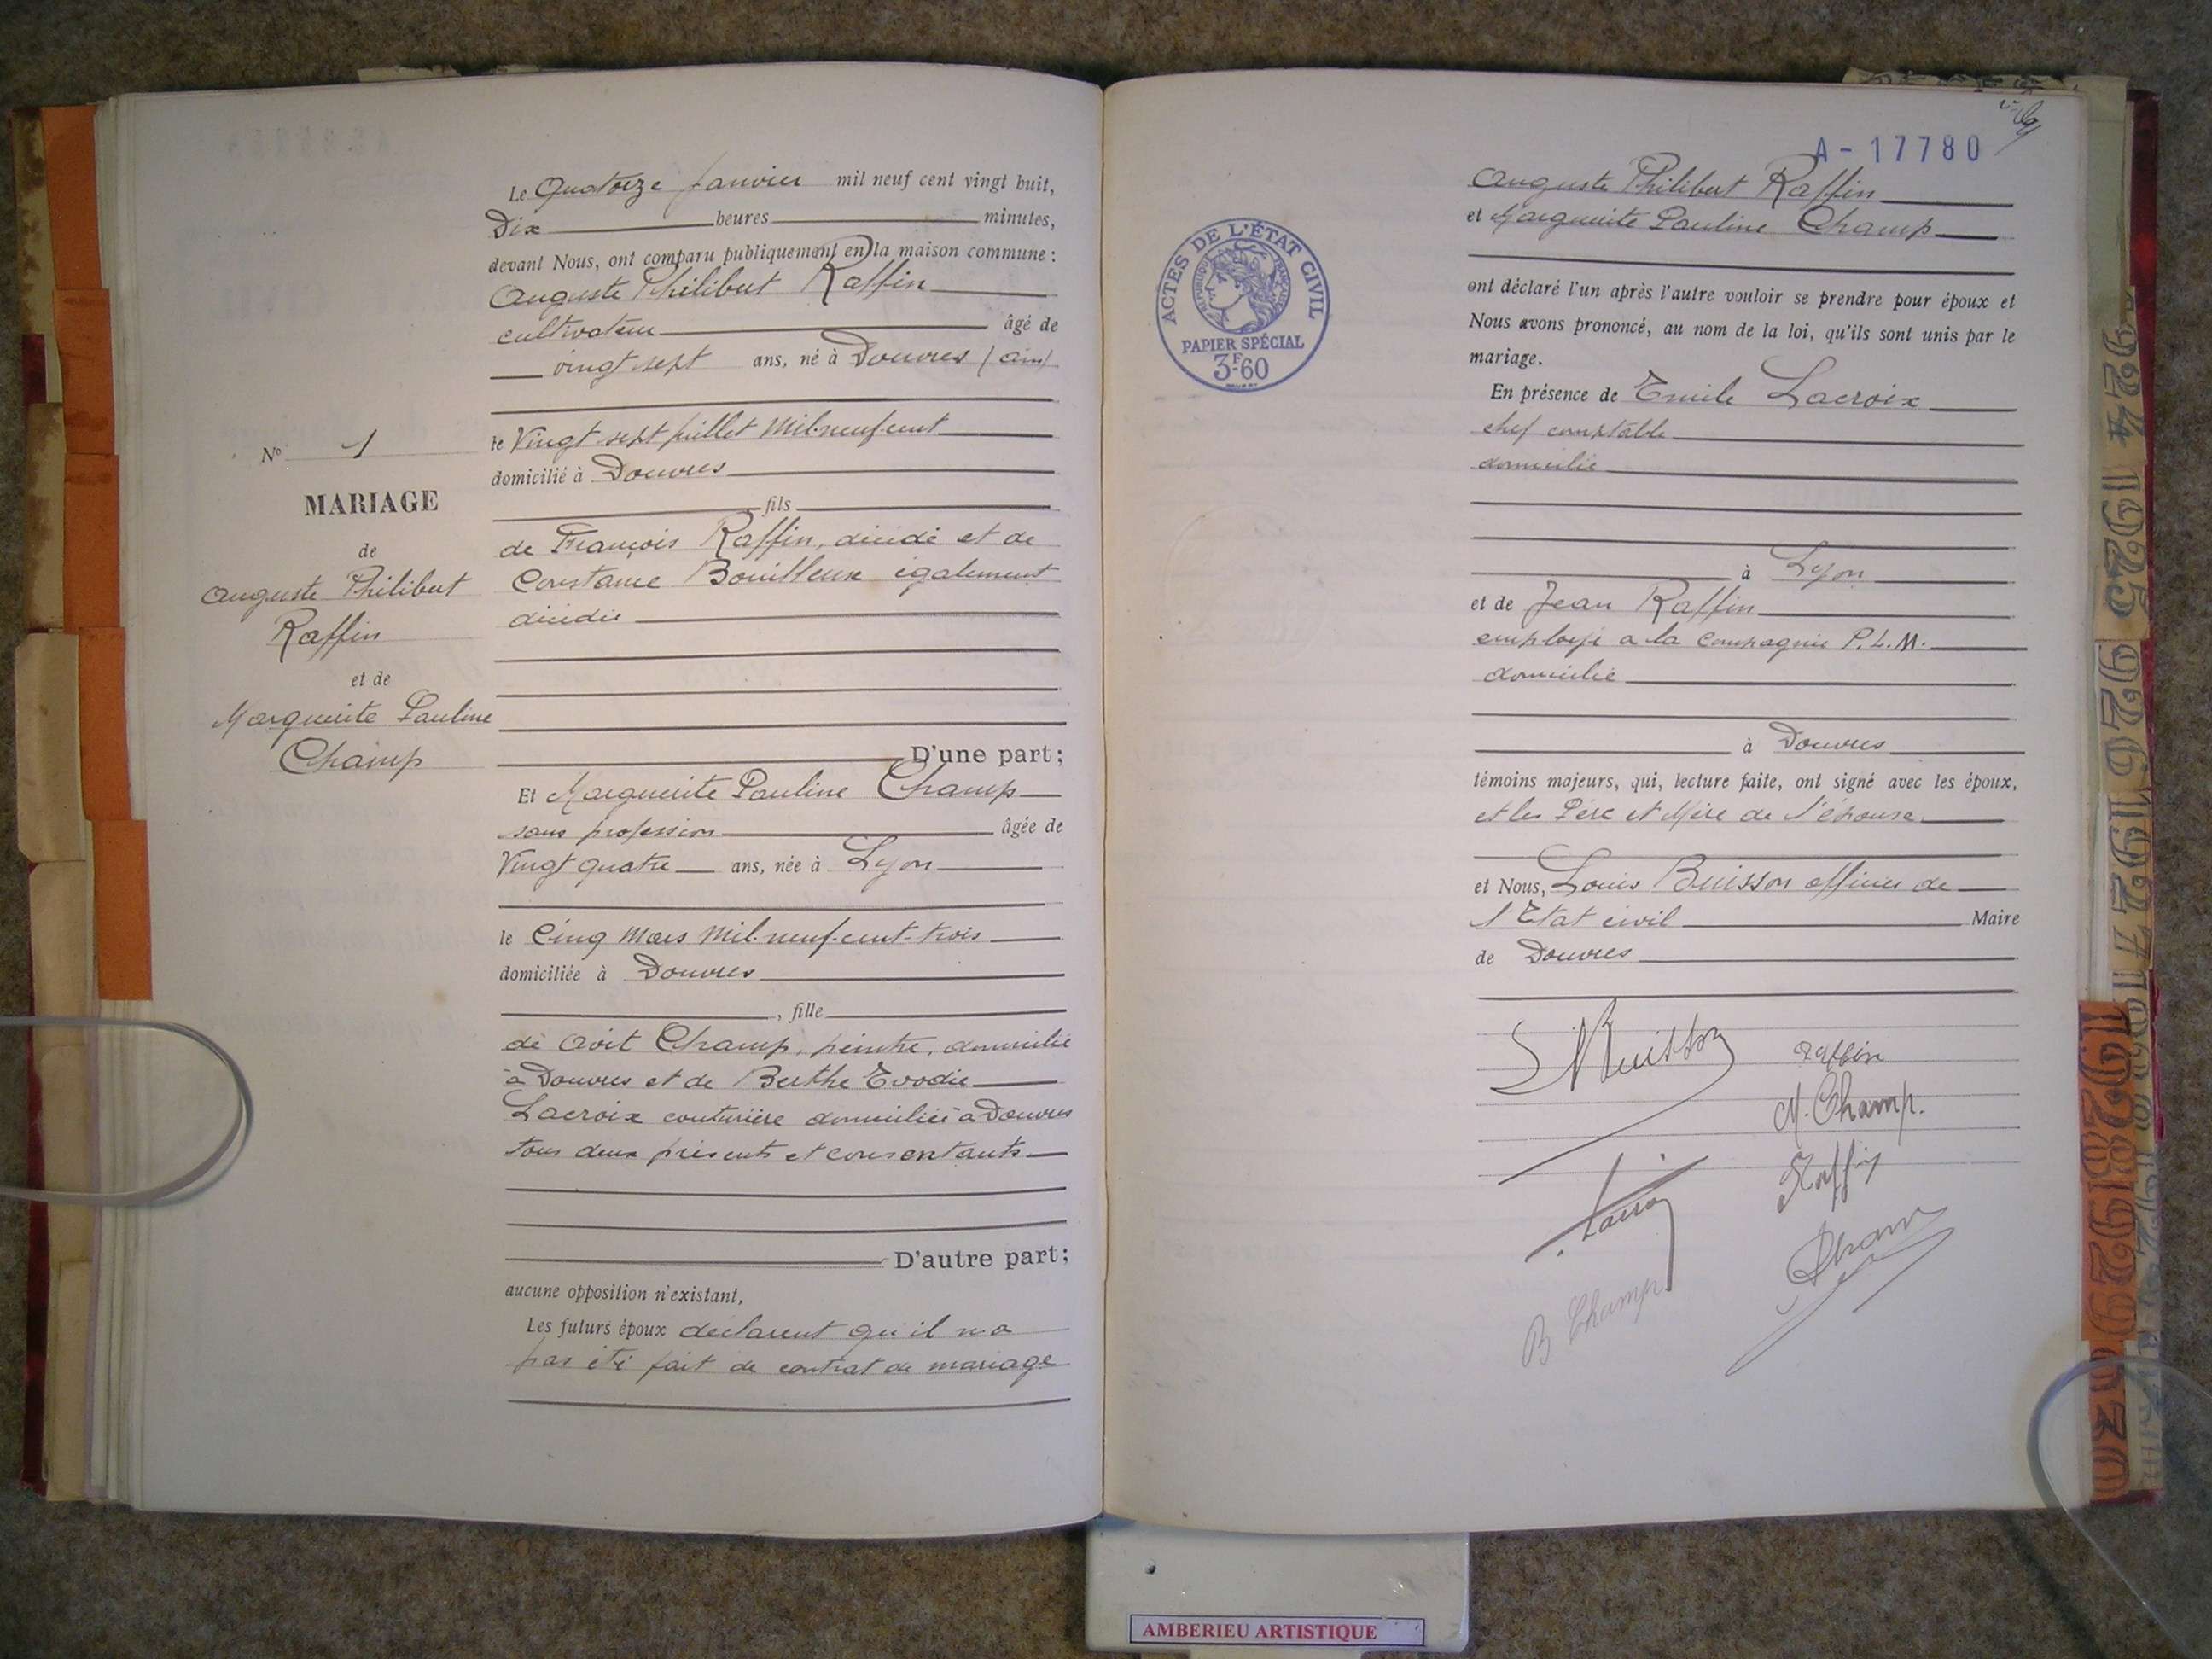 Le Quatorze Janvier mil neuf cent vingt huit,
Dix heures minutes,
devant Nous, ont comparu publiquement en la maison commune :
Auguste Philibert Raffin
cultivateur âgé de
vingt sept ans, né à Douvres (Ain)
le Vingt sept juillet mil neuf cent
domicilié à Douvres
fils
de François Raffin, décédé et de
Constance Bouilleux également
décédée
D'une part ;
Et Marguerite Pauline Champ
sans profession âgée de
Vingt quatre ans, née à Lyon
le Cinq Mars Mil-neuf-cent-trois
domiciliée à Douvres
, fille
de Avit Champ, peintre, domicilié
à Douvres et de Berthe Evodie
Lacroix couturière domiciliée à Douvres
tous deux présents et consentants
D'autre part ;
aucune opposition n'existant,
Les futurs époux déclarent qu'il n'a
pas été fait de contrat de mariage
No 1
MARIAGE
de
Auguste Philibert
Raffin
et de
Marguerite Pauline
Champ
A-17780
ACTES DE L'ÉTAT CIVIL
RÉPUBLIQUE FRANÇAISE
PAPIER SPÉCIAL
3F.60
Auguste Philibert Raffin
et Marguerite Pauline Champ
ont déclaré l'un après l'autre vouloir se prendre pour époux et
Nous avons prononcé, au nom de la loi, qu'ils sont unis par le
mariage.
En présence de Emile Lacroix
chef comptable
domicilié
à Lyon
et de Jean Raffin
employé a la Compagnie P.L.M.
domicilié
à Douvres
témoins majeurs, qui, lecture faite, ont signé avec les époux,
et les Père et Mère de l'épouse
et Nous, Louis Buisson officier de
l'Etat civil Maire
de Douvres
L Buisson
Raffin
M. Champ.
Raffin
B Champ
1924 1925 1926 1927 1928
1928 1929 1930
AMBERIEU ARTISTIQUE